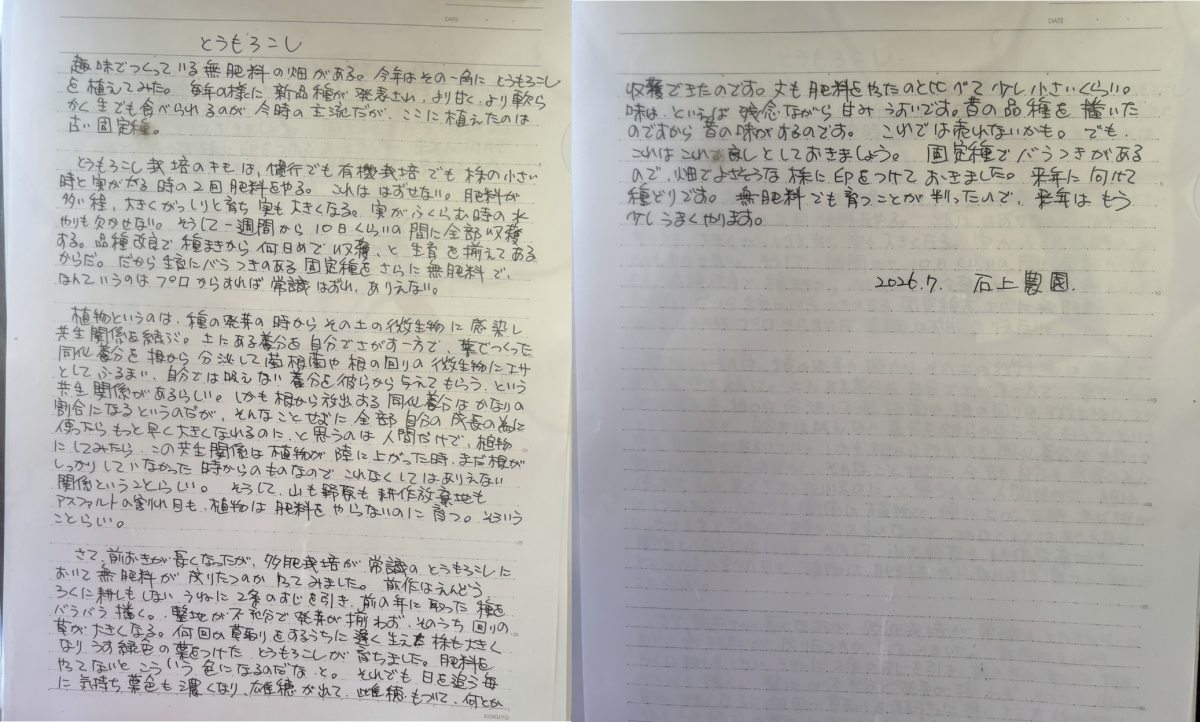 DATE
とうもろこし
趣味でつくっている無肥料の畑がある。今年はその一角にとうもろこし
を植えてみた。毎年の様に新品種が発表され、より甘く、より軟ら
かく生でも食べられるのが今時の主流だが、ここに植えたのは
古い固定種。
とうもろこし栽培のキモは、慣行でも有機栽培でも株の小さい
時と実がなる時の2回肥料をやる。これははずせない。肥料が
多い程、大きくがっしりと育ち実も大きくなる。実がふくらむ時の水
やりも欠かせない。そうして一週間から10日くらいの間に全部収穫
する。品種改良で種まきから何日めで収穫、と生育を揃えてある
からだ。だから生育にバラつきのある固定種をさらに無肥料で、
なんていうのはプロからすれば常識はずれ、ありえない。
植物というのは、種の発芽の時からその土の微生物に感染し
共生関係を結ぶ。土にある養分を自分でさがす一方で、葉でつくった
同化養分を根から分泌して菌根菌や根の回りの微生物にエサ
としてふるまい、自分では吸えない養分を彼らから与えてもらう、という
共生関係があるらしい。しかも根から放出する同化養分はかなりの
割合になるというのだが、そんなことせずに全部自分の成長の為に
使ったらもっと早く大きくなれるのに、と思うのは人間だけで、植物
にしてみたら、この共生関係は植物が陸に上がった時、まだ根が
しっかりしていなかった時からのものなので これなくしてはありえない
関係ということらしい。そうして、山も野原も耕作放棄地も
アスファルトの割れ目も、植物は肥料をやらないのに育つ。そういう
ことらしい。
さて、前おきが長くなったが、多肥栽培が常識のとうもろこしに
おいて無肥料が成りたつのかやってみました。前作はえんどう、
ろくに耕しもしないうねに2条のすじを引き、前の年に取った種を
バラバラ播く。整地が不充分で発芽が揃わず、そのうち回りの
草が大きくなる。何回か草取りをするうちに遅く生えた株も大きく
なりうす緑色の葉をつけたとうもろこしが育ちました。肥料を
やってないとこういう色になるのだな、と。それでも日を追う毎
に気持ち葉色も濃くなり、雄穂が出て、雌穂もついて、何とか
KOKUYO
DATE
収穫できたのです。丈も肥料をやったのと比べて少し小さいくらい。
味は、といえば残念ながら甘みうすいです。昔の品種を播いた
のですから昔の味がするのです。これでは売れないかも。でも、
これはこれで良しとしておきましょう。固定種でバラつきがある
ので、畑でよさそうな株に印をつけておきました。来年に向けて
種どりです。無肥料でも育つことが判ったので、来年はもう
少しうまくやります。
2026.7. 石上農園.